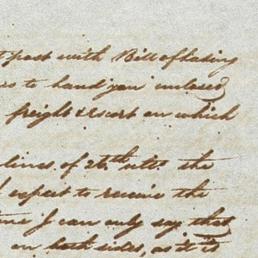 post with Bill of Lading
to hand you inclosed
freight & cost on which
lines of 26th ulto the
expect to receive the
I can only say that
on both sides, as it is